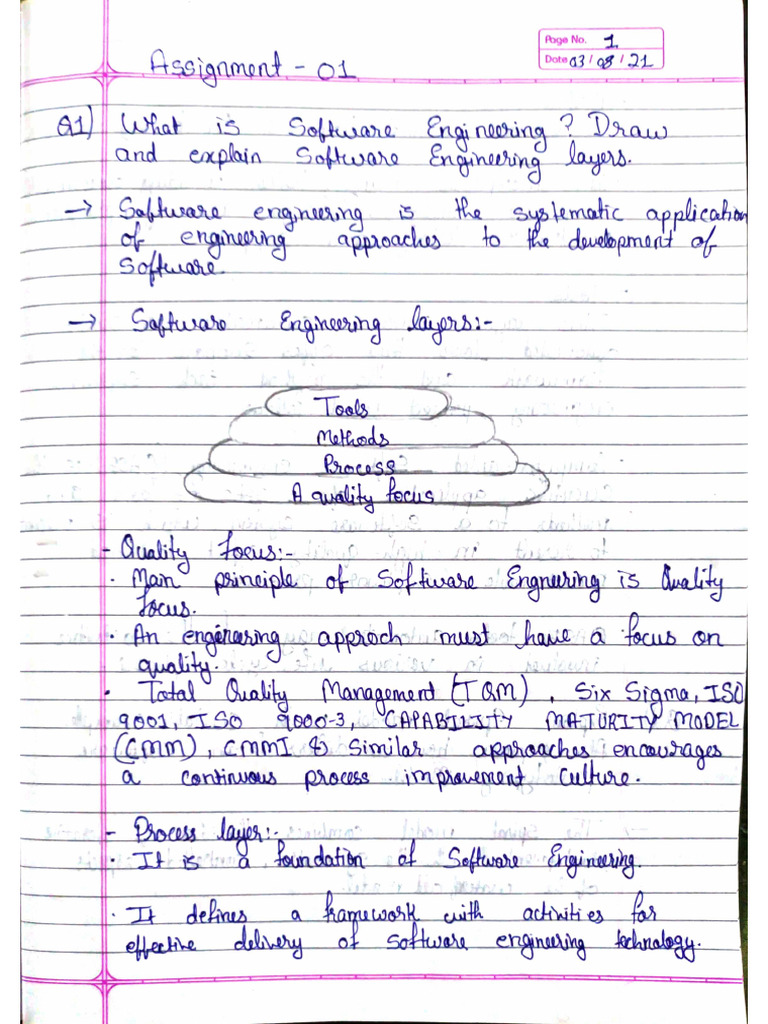 Page No. 1
Date 03/08/21
Assignment - 01
Q1) What is Software Engineering? Draw
and explain Software Engineering layers.
→ Software engineering is the systematic application
of engineering approaches to the development of
Software.
→ Software Engineering layers:-
Tools
Methods
Process
A quality focus
- Quality focus:-
· Main principle of Software Engneering is Quality
focus.
· An engineering approch must have a focus on
quality.
· Total Quality Management (TQM), Six Sigma, ISO
9001, ISO 9000-3, CAPABILITY MATURITY MODEL
(CMM), CMMI & Similar approaches encourages
a continuous process improvement culture.
- Process layer:-
· It is a foundation of Software Engineering.
· It defines a framework with activities for
effective delivery of software engineering technology.